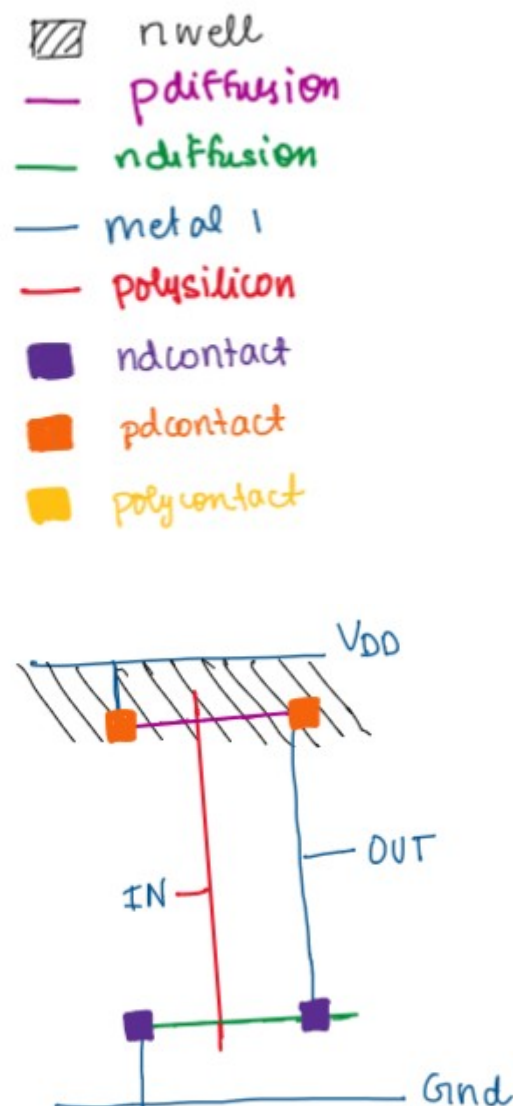 nwell
pdiffusion
ndiffusion
metal 1
polysilicon
ndcontact
pdcontact
polycontact
VDD
OUT
IN
Gnd